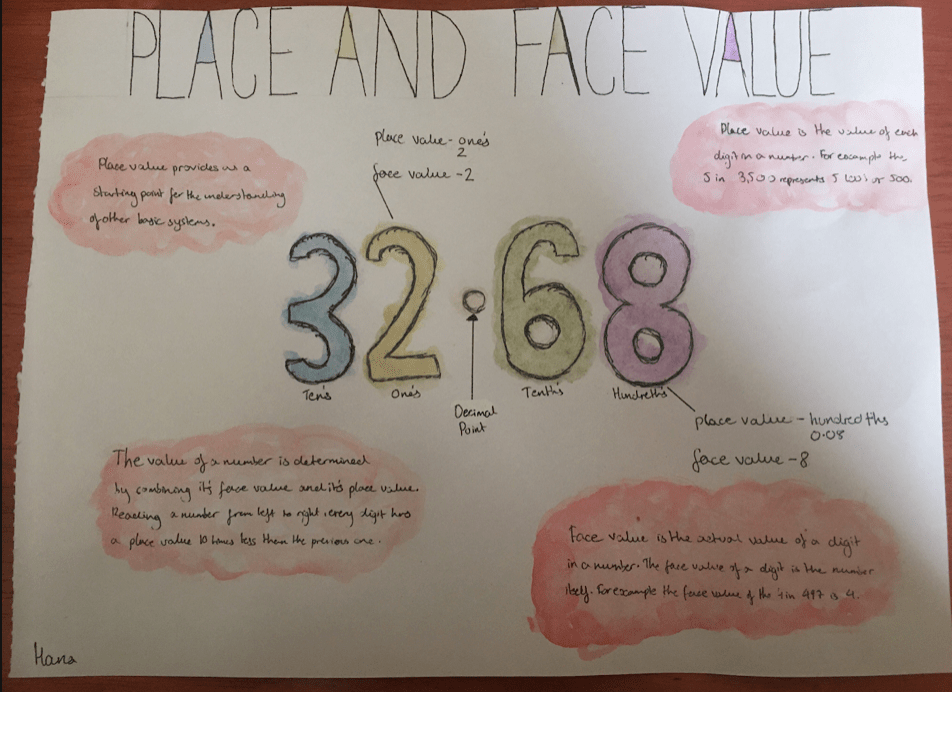 PLACE AND FACE VALUE
Place value provides us a
starting point for the understanding
of other basic systems.
place value - one's
2
face value - 2
Place value is the value of each
digit in a number. For example the
5 in 3,500 represents 5 100's or 500.
32.68
Ten's
One's
Decimal
Point
Tenth's
Hundreth's
place value - hundredths
0.08
face value - 8
The value of a number is determined
by combining it's face value and it's place value.
Reading a number from left to right, every digit has
a place value 10 times less than the previous one.
Face value is the actual value of a digit
in a number. The face value of a digit is the number
itself. For example the face value of the 4 in 497 is 4.
Hana